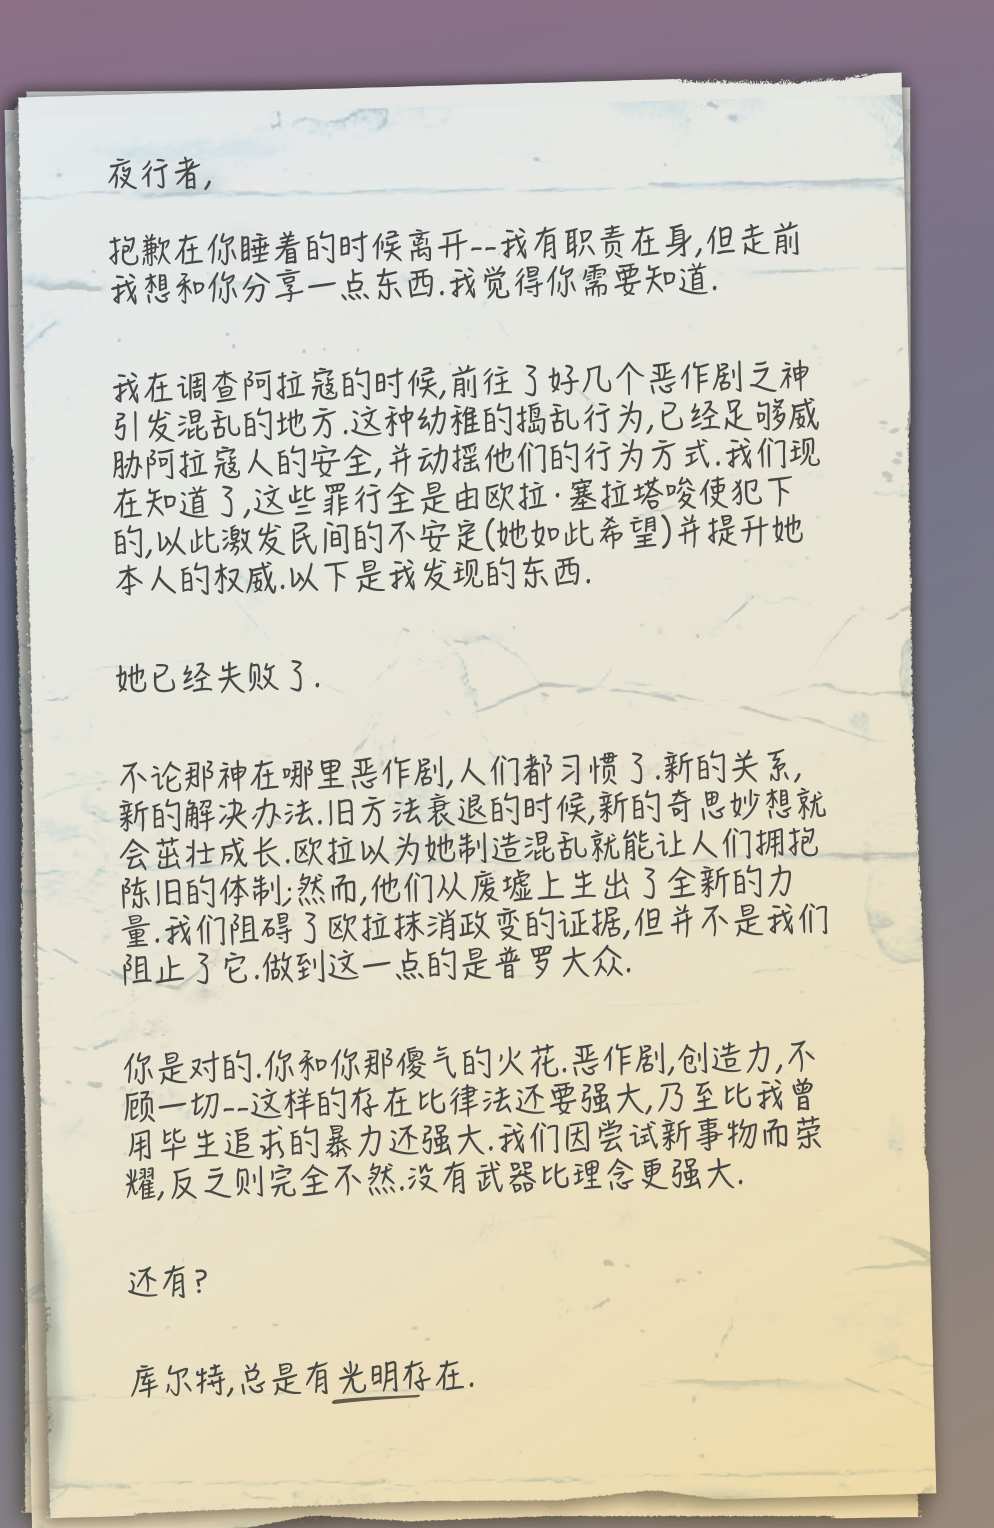 夜行者,
抱歉在你睡着的时候离开--我有职责在身,但走前
我想和你分享一点东西.我觉得你需要知道.
我在调查阿拉寇的时候,前往了好几个恶作剧之神
引发混乱的地方.这种幼稚的捣乱行为,已经足够威
胁阿拉寇人的安全,并动摇他们的行为方式.我们现
在知道了,这些罪行全是由欧拉·塞拉塔唆使犯下
的,以此激发民间的不安定(她如此希望)并提升她
本人的权威.以下是我发现的东西.
她已经失败了.
不论那神在哪里恶作剧,人们都习惯了.新的关系,
新的解决办法.旧方法衰退的时候,新的奇思妙想就
会茁壮成长.欧拉以为她制造混乱就能让人们拥抱
陈旧的体制;然而,他们从废墟上生出了全新的力
量.我们阻碍了欧拉抹消政变的证据,但并不是我们
阻止了它.做到这一点的是普罗大众.
你是对的.你和你那傻气的火花.恶作剧,创造力,不
顾一切--这样的存在比律法还要强大,乃至比我曾
用毕生追求的暴力还强大.我们因尝试新事物而荣
耀,反之则完全不然.没有武器比理念更强大.
还有?
库尔特,总是有光明存在.